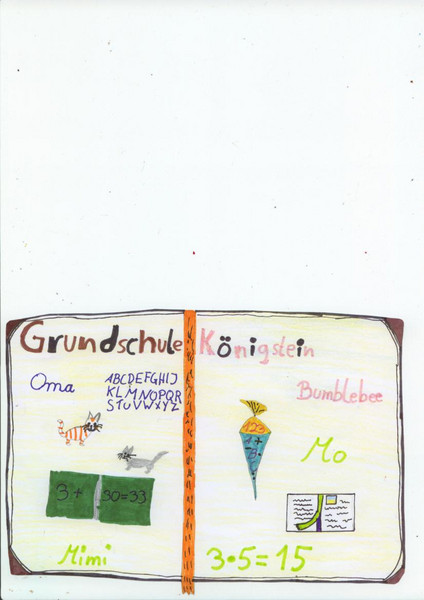 Grundschule Königstein
Oma
ABCDEFGHIJ
KLMNOPQR
STUVWXYZ
3+ 30=33
Mimi
Bumblebee
123
Mo
3·5=15